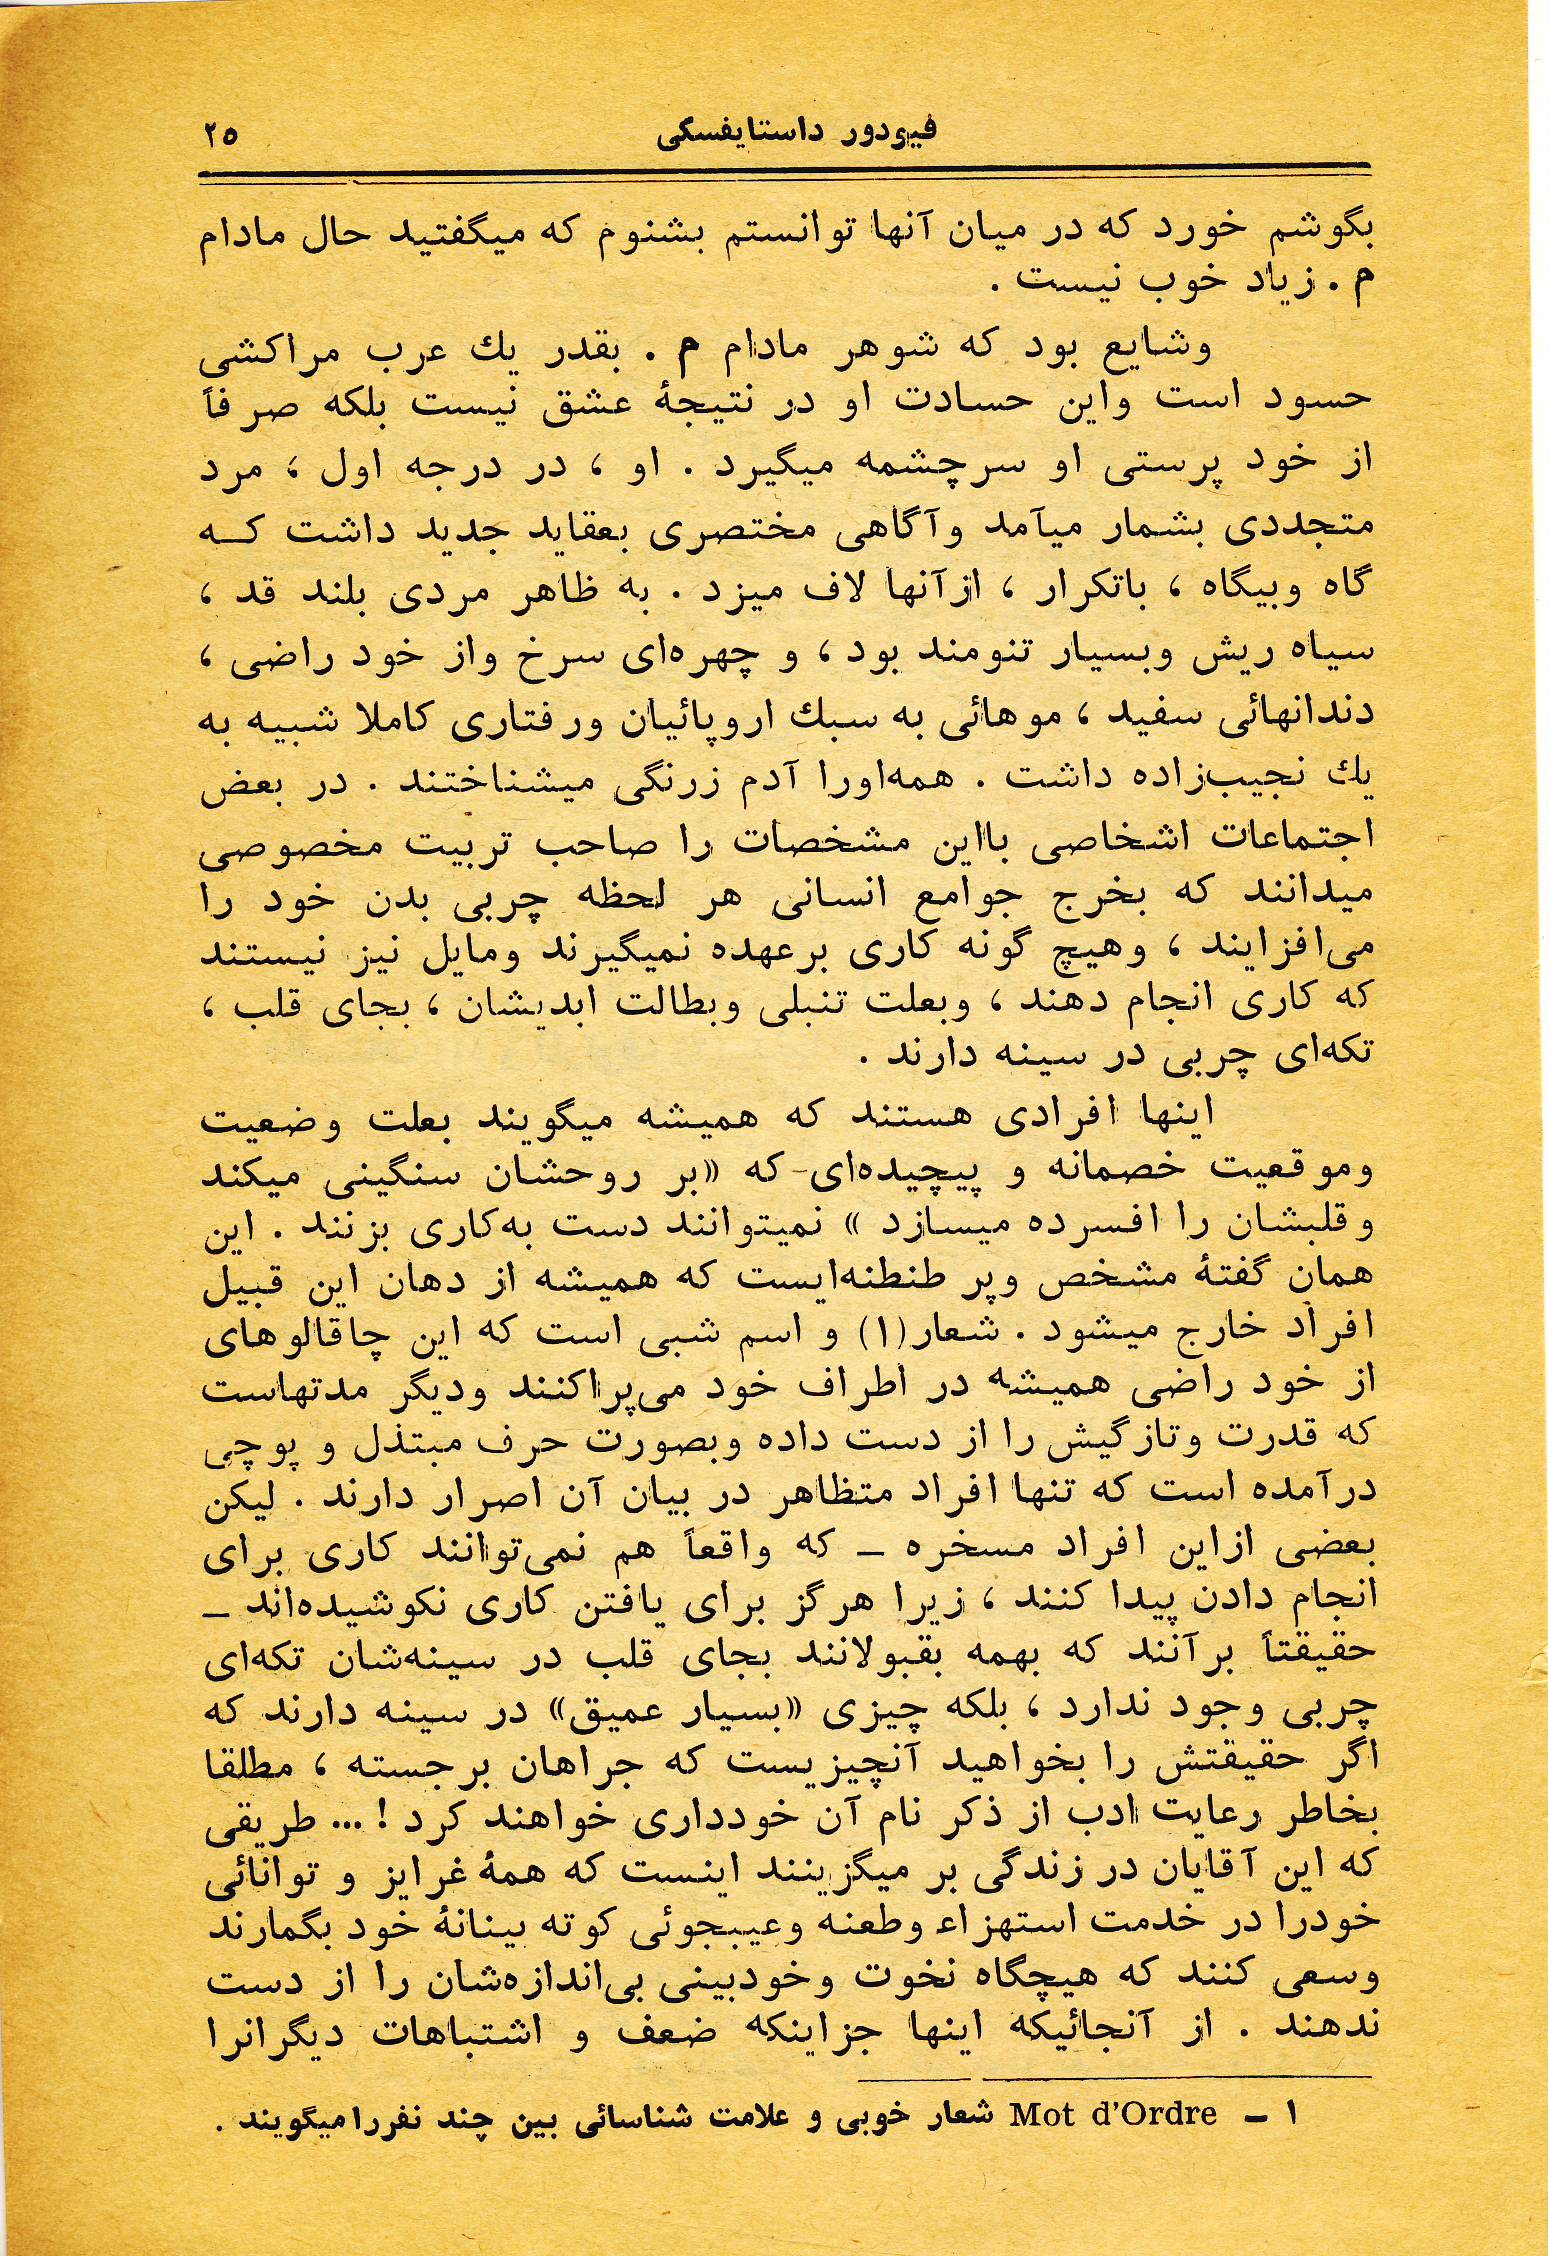 فیودور داستایفسکی
۲۵
بگوشم خورد که در میان آنها توانستم بشنوم که میگفتید حال مادام
م . زیاد خوب نیست .
وشایع بود که شوهر مادام م . بقدر یك عرب مراکشی
حسود است واین حسادت او در نتیجۀ عشق نیست بلکه صرفاً
از خود پرستی او سرچشمه میگیرد . او ، در درجه اول ، مرد
متجددی بشمار میآمد وآگاهی مختصری بعقاید جدید داشت کـه
گاه وبیگاه ، باتکرار ، ازآنها لاف میزد . به ظاهر مردی بلند قد ،
سیاه ریش وبسیار تنومند بود ، و چهره‌ای سرخ واز خود راضی ،
دندانهائی سفید ، موهائی به سبك اروپائیان ورفتاری کاملا شبیه به
یك نجیب‌زاده داشت . همه‌اورا آدم زرنگی میشناختند . در بعض
اجتماعات اشخاصی بااین مشخصات را صاحب تربیت مخصوصی
میدانند که بخرج جوامع انسانی هر لحظه چربی بدن خود را
می‌افزایند ، وهیچ گونه کاری برعهده نمیگیرند ومایل نیز نیستند
که کاری انجام دهند ، وبعلت تنبلی وبطالت ابدیشان ، بجای قلب ،
تکه‌ای چربی در سینه دارند .
اینها افرادی هستند که همیشه میگویند بعلت وضعیت
وموقعیت خصمانه و پیچیده‌ای- که «بر روحشان سنگینی میکند
وقلبشان را افسرده میسازد » نمیتوانند دست به‌کاری بزنند . این
همان گفتۀ مشخص وپر طنطنه‌ایست که همیشه از دهان این قبیل
افراد خارج میشود . شعار(۱) و اسم شبی است که این چاقالوهای
از خود راضی همیشه در اطراف خود می‌پراکنند ودیگر مدتهاست
که قدرت وتازگیش را از دست داده وبصورت حرف مبتذل و پوچی
درآمده است که تنها افراد متظاهر در بیان آن اصرار دارند . لیکن
بعضی ازاین افراد مسخره ـ که واقعاً هم نمی‌توانند کاری برای
انجام دادن پیدا کنند ، زیرا هرگز برای یافتن کاری نکوشیده‌اند ـ
حقیقتاً برآنند که بهمه بقبولانند بجای قلب در سینه‌شان تکه‌ای
چربی وجود ندارد ، بلکه چیزی «بسیار عمیق» در سینه دارند که
اگر حقیقتش را بخواهید آنچیزیست که جراهان برجسته ، مطلقا
بخاطر رعایت ادب از ذکر نام آن خودداری خواهند کرد ! ... طریقی
که این آقایان در زندگی بر میگزینند اینست که همۀ غرایز و توانائی
خودرا در خدمت استهزاء وطعنه وعیبجوئی کوته بینانۀ خود بگمارند
وسعی کنند که هیچگاه نخوت وخودبینی بی‌اندازه‌شان را از دست
ندهند . از آنجائیکه اینها جزاینکه ضعف و اشتباهات دیگرانرا
۱ ـ Mot d'Ordre شعار خوبی و علامت شناسائی بین چند نفررامیگویند .